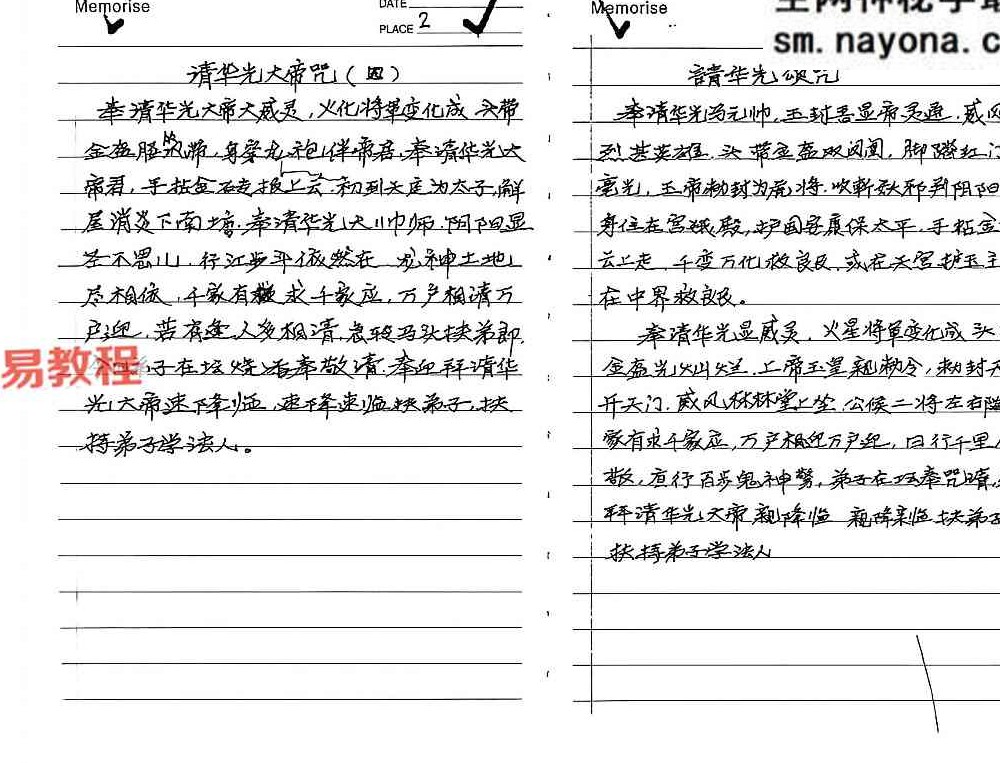 Memorise
DATE
PLACE 2
请华光大帝咒(四)
奉请华光大帝大威灵,火化将军变化成 头带
金盔 飘带,身穿龙袍伴帝君,奉请华光大
帝君,手拈金砖 报上云 初到天庭为太子,解
厄消灾下南 奉请华光大帅师 阴阳显
圣不思 行江步斗依然在 龙神土地
尽相依,千家有求千家应,万户相请万
户迎,若有 人多相请,急转马头扶弟郎,
子在坛烧香奉敬请,奉迎拜请华
光大帝速下降临,速下降速临扶弟子,扶
持弟子学法人。
易教程
Memorise
sm.nayona.c
請华光
奉请华光马元帅,玉封吾显帝灵通,威风
烈甚英雄,头带金盔双凤 脚踏红门
毫光,玉帝勅封为 将,收斩妖邪判阴阳
身住在宫 殿,护国安康保太平,手拈金
云上走,千变万化救良民,或在天宫护玉
在中界救良民。
奉请华光显威灵,火星将军变化成 头
金盔光灿烂,上帝玉皇親勅令,勅封天
开天门,威风林林堂上坐,公候二将左右随
家有求千家应,万户相迎万户迎,日行千里
敬,夜行百步鬼神惊,弟子在坛奉咒請,
拜请华光大帝親降临 親降 临扶弟子
扶持弟子学法人